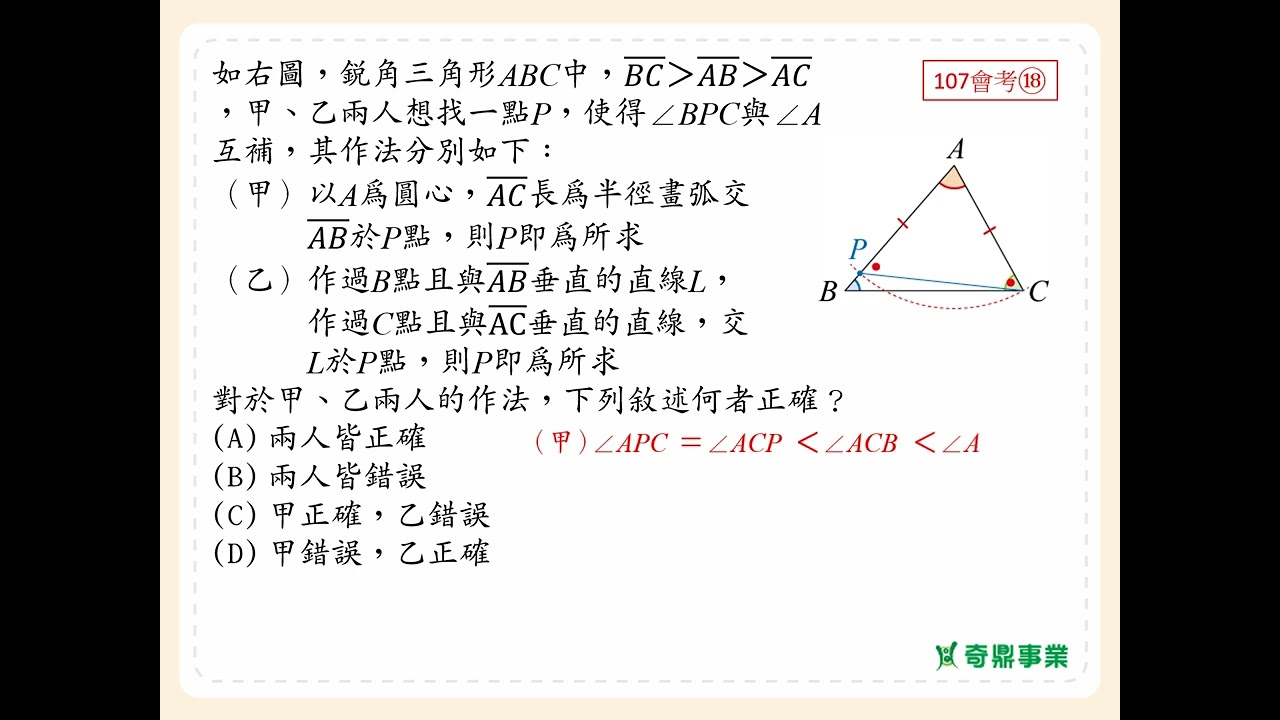 如右圖，銳角三角形ABC中，BC＞AB＞AC
107會考⑱
，甲、乙兩人想找一點P，使得∠BPC與∠A
互補，其作法分別如下：
（甲）以A為圓心，AC長為半徑畫弧交
AB於P點，則P即為所求
（乙）作過B點且與AB垂直的直線L，
作過C點且與AC垂直的直線，交
L於P點，則P即為所求
A
P
B
C
對於甲、乙兩人的作法，下列敘述何者正確？
(A) 兩人皆正確
（甲）∠APC＝∠ACP＜∠ACB＜∠A
(B) 兩人皆錯誤
(C) 甲正確，乙錯誤
(D) 甲錯誤，乙正確
奇鼎事業